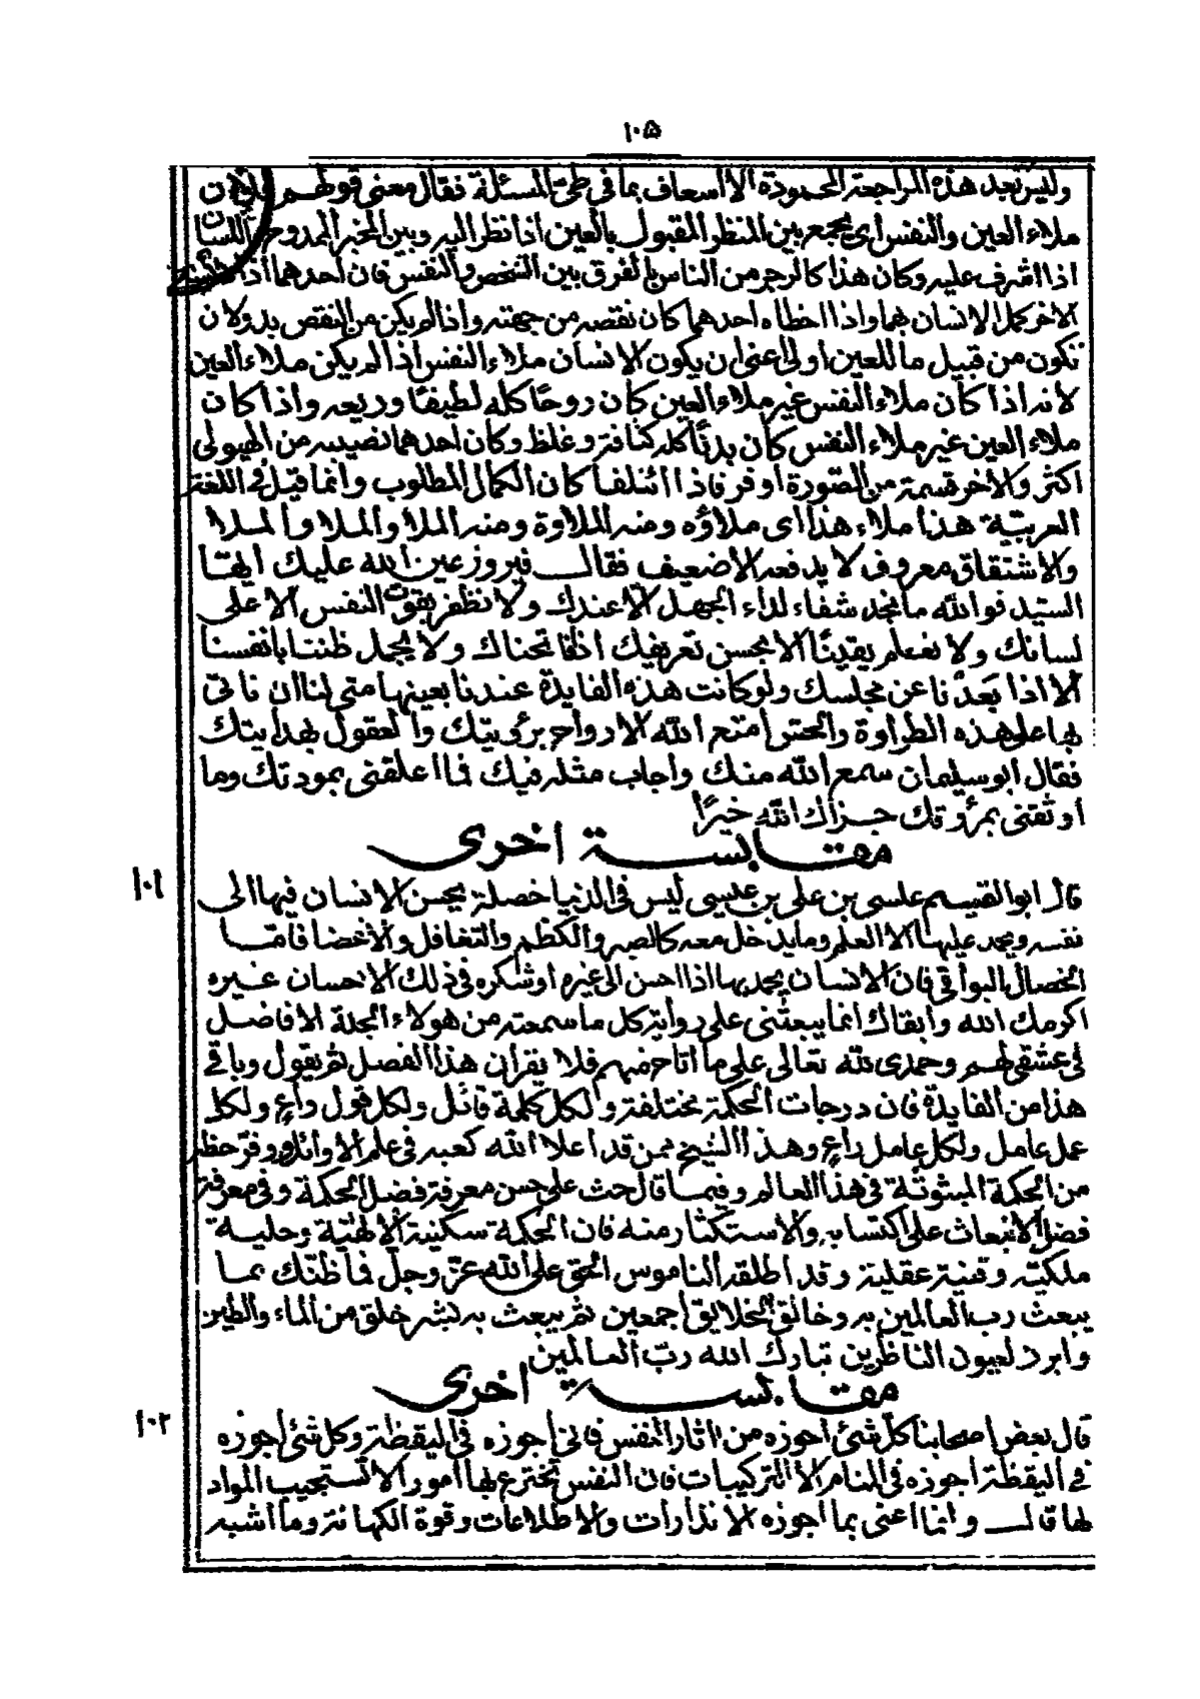 ١٠٥
وليس بعد هذه المراجعة المحمودة الا اسعاف بما في طى المسئلة فقال معنى قولهم فلان
ملاء العين والنفس اى يجمع بين المنظر المقبول بالعين اذا نظر اليه وبين المخبر الممدوح باللسان
اذا اشرف عليه وكان هذا كالرجز من الناس بالفرق بين الشخص والنفس فان احدهما اذا
الاخر كمل الانسان بهما واذا اخطاه احدهما كان نقصه من جهته واذا لم يكن من النقص بد ولان
تكون من قبيل ما للعين اولى اعنى ان يكون الانسان ملاء النفس اذا لم يكن ملاء العين
لانه اذا كان ملاء النفس غير ملاء العين كان روحًا كله لطيفًا وريعه واذا كان
ملاء العين غير ملاء النفس كان بدنًا كله كثافة وغلظ وكان احدهما نصيبه من الهيولى
اكثر والاخر قسمته من الصّورة اوفر فاذا ائتلفا كان الكمال المطلوب وانما قيل فى اللغة
العربيّة هذا ملاء هذا اى ملاؤه ومنه الملاوة ومنه الملا والملا والملا
والاشتقاق معروف لا يدفعه الا ضعيف فقال فيروز عين الله عليك ايها
السّيد فوالله ما نجد شفاء لداء الجهل الا عندك ولا نظفر بقوت النفس الا على
لسانك ولا نعلم يقينًا الا بحسن تعريفك اذا فاتحناك ولا يجمل ظننا بانفسنا
الا اذا بَعدْنا عن مجلسك ولو كانت هذه الفايدة عندنا بعينها متى لنا ان ناتى
بها على هذه الطراوة والحسن امتع الله الارواح برؤيتك والعقول بهدايتك
فقال ابو سليمان سمع الله منك واجاب مثله فيك فما اعلقنى بمودتك وما
اوثقنى بمرؤتك جزاك الله خيرًا
مقابسة اخرى
١٠١
قال ابو القيسم علسى بن على بن عيسى ليس فى الدنيا خصلة يحسن الانسان فيها الى
نفسه ويحمد عليها الا العلم وما يدخل معه كالصبر والكظم والتغافل والاغضا فامّا
الخصال البواقى فان الانسان يحمد بها اذا احسن الى غيره او شكره فى ذلك الاحسان غيره
اكرمك الله وابقاك انما يبعثنى على رواية كل ما سمعته من هولاء الجلة الافاضل
فى عشقى لهم وحمدى لله تعالى على ما اتاح منهم فلا يقرأن هذا الفصل ثم يقول وباقے
هذا من الفايدة فان درجات الحكمة مختلفة ولكل كلمة قائل ولكل قول داعٍ ولكل
عمل عامل ولكل عامل راعٍ وهذا الشيخ ممن قد اعلا الله كعبه فى علم الاوائل ووفّر حظه
من الحكمة المبثوثة فى هذا العالم وفيما قال حث على حسن معرفة فضل الحكمة وفى معرفة
فضل الانبعاث على اكتسابه والاستكثار منه فان الحكمة سكينة الالهيّة وحلية
ملكيّة وقنية عقلية وقد اطلقه الناموس الحق على الله عزّ وجلّ فما ظنّك بما
يبعث رب العالمين به وخالق الخلايق اجمعين ثم يبعث به لبشر خلق من الماء والطين
وابرد لعيون الناظرين تبارك الله ربّ العالمين
مقابسة اخرى
١٠٢
قال بعض اصحابنا كل شئ اجوزه من اثار النفس فانى اجوزه فى اليقظة وكل شئ اجوزه
فے اليقظة اجوزه فى المنام الا التركيبات فان النفس تخترع بها امورا لا تستجيب المواد
لها قال وانما اعنى بما اجوزه الانذارات والاطلاعات وقوة الكهانة وما اشبه